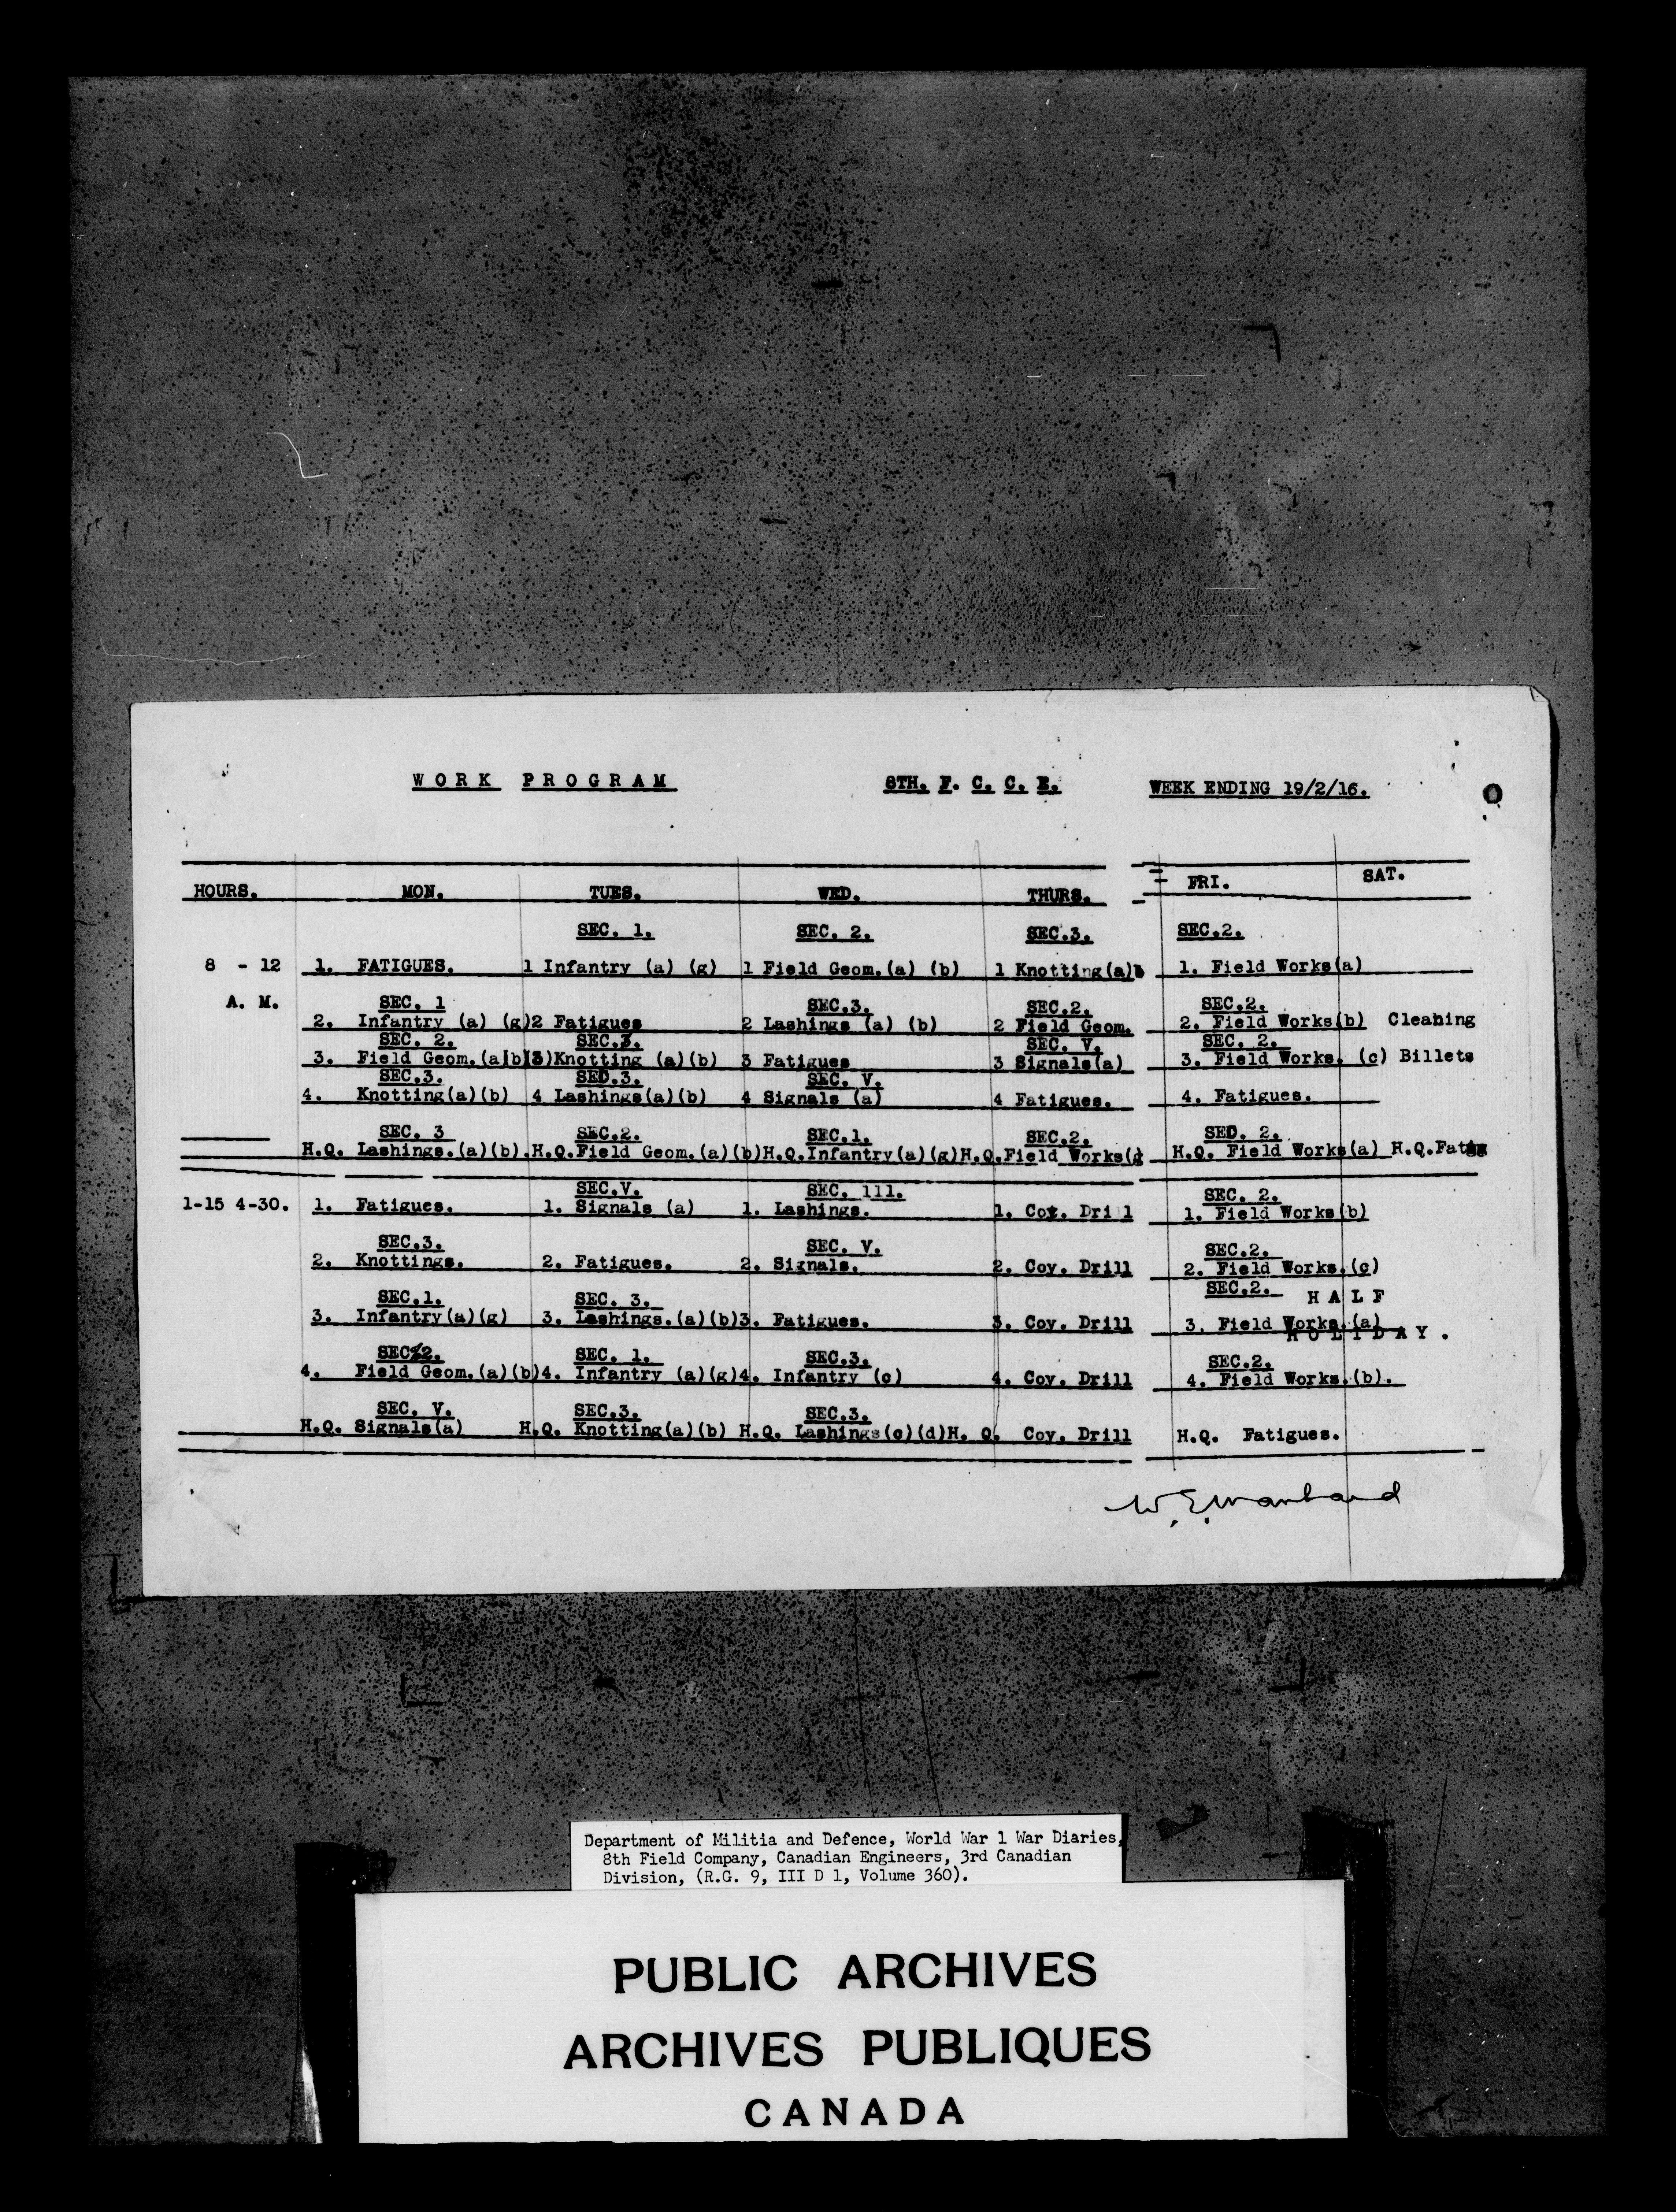 WORK PROGRAM 8TH. F. C. C. E. WEEK ENDING 19/2/16.
HOURS. MON. TUES. WED. THURS. FRI. SAT.
SEC. 1. SEC. 2. SEC.3. SEC.2.
8 - 12 1. FATIGUES. 1 Infantry (a) (g) 1 Field Geom.(a) (b) 1 Knotting(a)b 1. Field Works(a)
A. M. SEC. 1 SEC.3. SEC.2. SEC.2.
2. Infantry (a) (g) 2 Fatigues 2 Lashings (a) (b) 2 Field Geom. 2. Field Works(b) Cleaning
SEC. 2. SEC.3. SEC. V. SEC. 2.
3. Field Geom.(a)b) 3)Knotting (a)(b) 3 Fatigues 3 Signals(a) 3. Field Works. (c) Billets
SEC.3. SED.3. SEC. V.
4. Knotting(a)(b) 4 Lashings(a)(b) 4 Signals (a) 4 Fatigues. 4. Fatigues.
SEC. 3 SEC.2. SEC.1. SEC.2. SED. 2.
H.Q. Lashings.(a)(b). H.Q.Field Geom.(a)(b) H.Q.Infantry(a)(g) H.Q.Field Works(g H.Q. Field Works(a) H.Q.
SEC.V. SEC. 111. SEC. 2.
1-15 4-30. 1. Fatigues. 1. Signals (a) 1. Lashings. 1. Coy. Drill 1. Field Works(b)
SEC.3. SEC. V. SEC.2.
2. Knottings. 2. Fatigues. 2. Signals. 2. Coy. Drill 2. Field Works.(c)
SEC.1. SEC. 3. SEC.2. HALF
3. Infantry(a)(g) 3. Lashings.(a)(b) 3. Fatigues. 3. Coy. Drill 3. Field Works.(a)
HOLIDAY.
SEC.2. SEC. 1. SEC.3. SEC.2.
4. Field Geom.(a)(b) 4. Infantry (a)(g) 4. Infantry (c) 4. Coy. Drill 4. Field Works.(b).
SEC. V. SEC.3. SEC.3.
H.Q. Signals(a) H.Q. Knotting(a)(b) H.Q. Lashings(c)(d) H. Q. Coy. Drill H.Q. Fatigues.
Department of Militia and Defence, World War 1 War Diaries,
8th Field Company, Canadian Engineers, 3rd Canadian
Division, (R.G. 9, III D 1, Volume 360).
PUBLIC ARCHIVES
ARCHIVES PUBLIQUES
CANADA